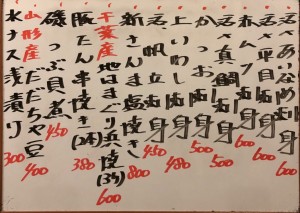 活〆あいなめ刺身 600
活〆平目刺身 600
ホヤ刺身 600
活〆真鯛刺身 500
かつお刺身 500
上いわし刺身 480
活帆立刺身 450
つぶ焼き 800
千葉産地はまぐり浜焼(3ケ) 600
豚たん串焼き(2本) 380
磯つぶ貝煮 450
山形産だだちゃ豆 400
水ナス浅漬り 300